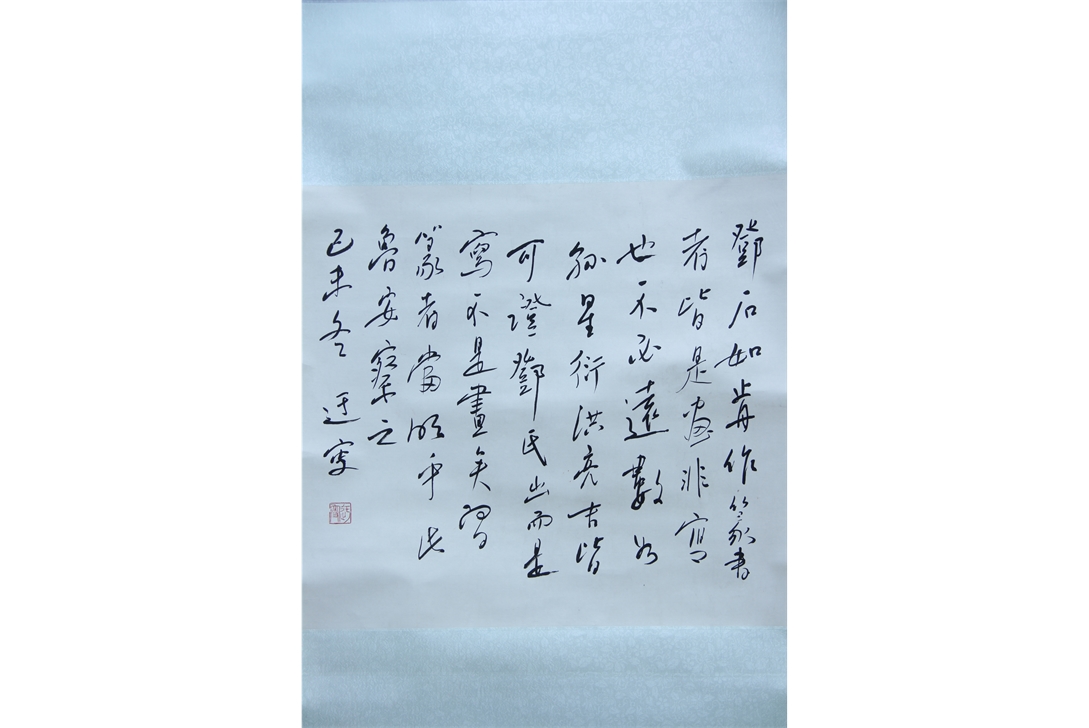 鄧石如前作篆書
者皆是畫非寫
也不必遠數如
孫星衍洪亮吉皆
可證鄧氏出而是
寫不是畫矣習
篆者當明乎此
魯安察之
己未冬 迂叟